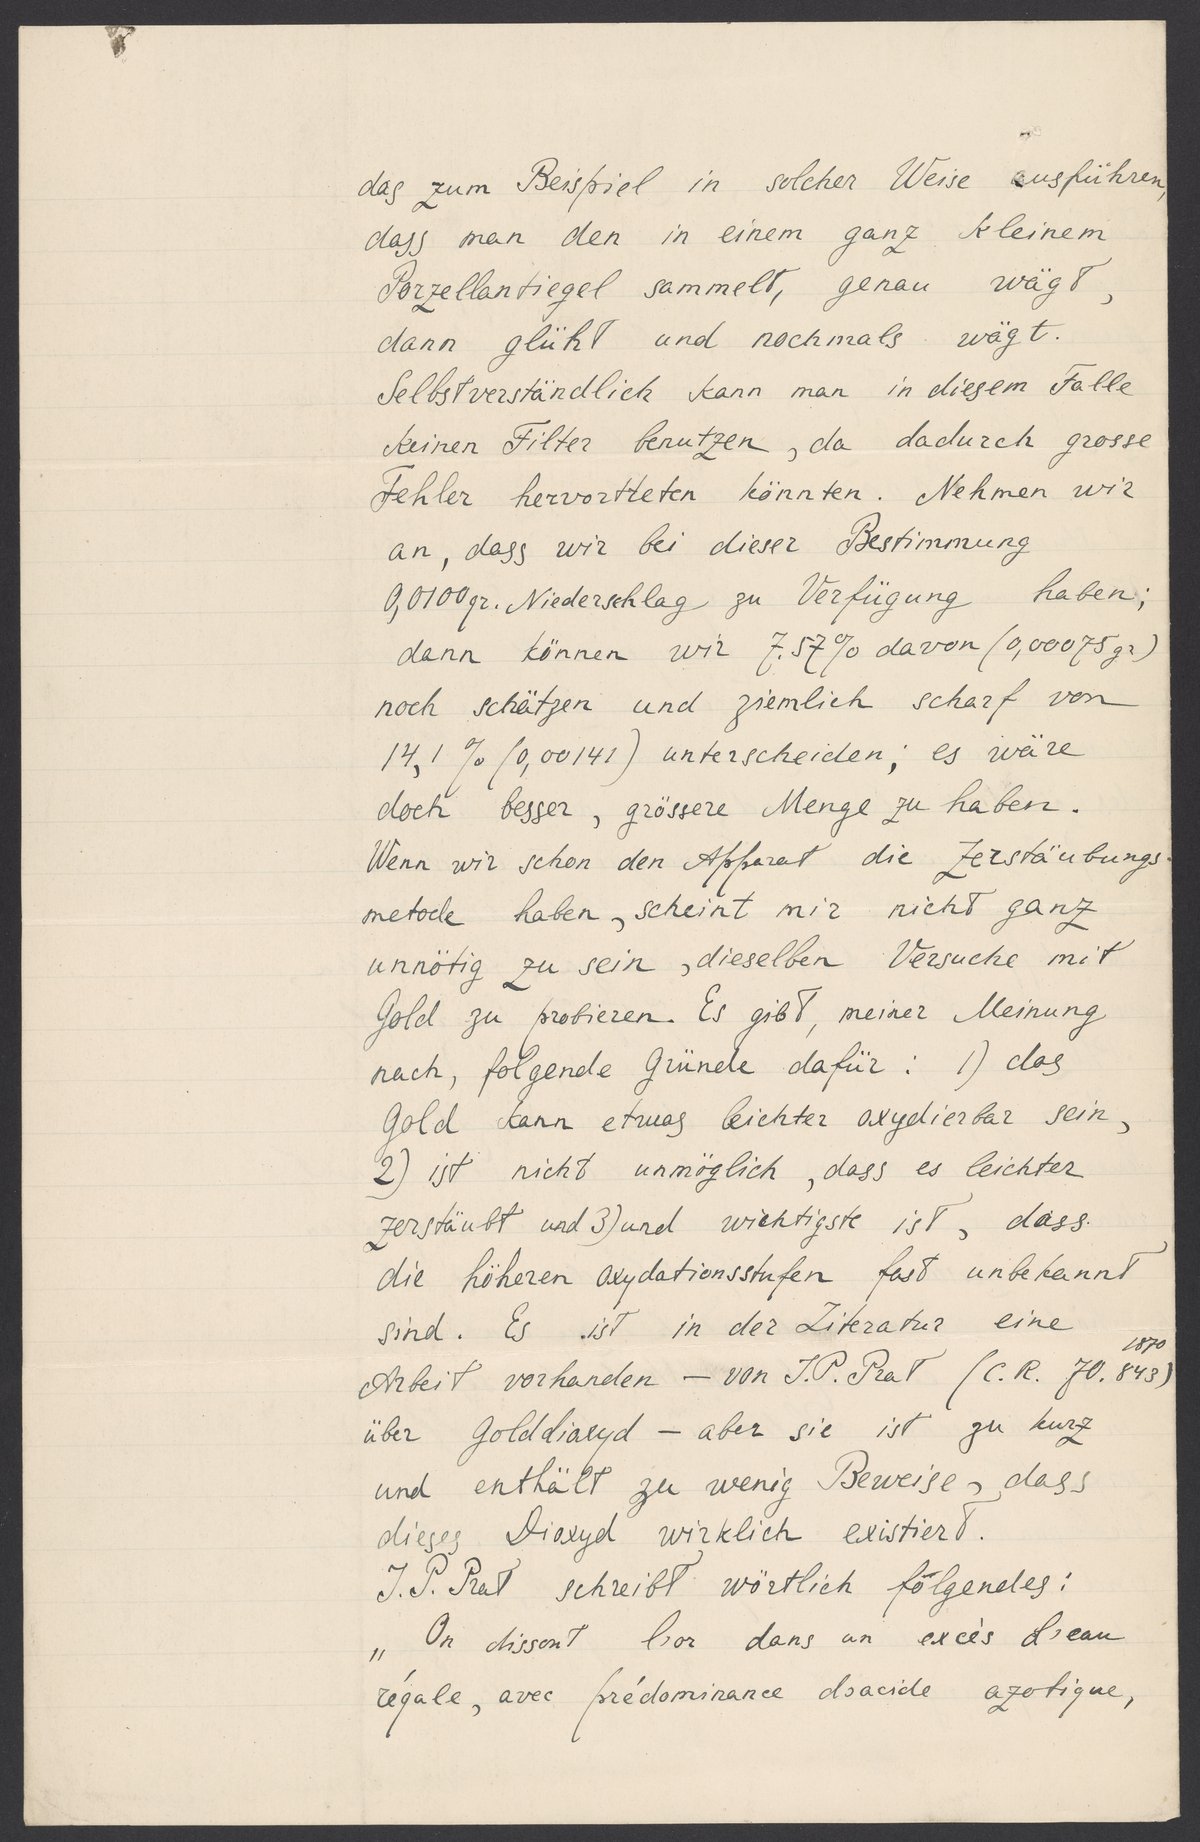 das zum Beispiel in solcher Weise ausführen,
dass man den in einem ganz kleinem
Porzellantiegel sammelt, genau wägt,
dann glüht und nochmals wägt.
Selbstverständlich kann man in diesem Falle
keinen Filter benutzen, da dadurch grosse
Fehler hervortreten könnten. Nehmen wir
an, dass wir bei dieser Bestimmung
0,0100 gr. Niederschlag zu Verfügung haben;
dann können wir 7.57% davon (0,00075 gr)
noch schätzen und ziemlich scharf von
14,1 % (0,00141) unterscheiden; es wäre
doch besser, grössere Menge zu haben.
Wenn wir schon den Apparat die Zerstäubungs-
metode haben, scheint mir nicht ganz
unnötig zu sein, dieselben Versuche mit
Gold zu probieren. Es gibt, meiner Meinung
nach, folgende Gründe dafür: 1) das
Gold kann etwas leichter oxydierbar sein,
2) ist nicht unmöglich, dass es leichter
zerstäubt und 3) und wichtigste ist, dass
die höheren Oxydationsstufen fast unbekannt
sind. Es ist in der Literatur eine
Arbeit vorhanden — von J.P. Prat (C.R. 70. 843) 1870
über Golddioxyd — aber sie ist zu kurz
und enthält zu wenig Beweise, dass
dieses Dioxyd wirklich existiert.
J.P. Prat schreibt wörtlich folgendes:
„ On dissout l'or dans un excès d'eau
régale, avec prédominance d'acide azotique,